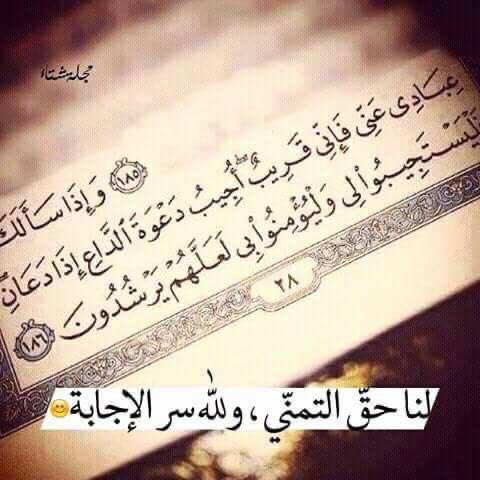 مجلة شتاء
﴿١٨٥﴾ وَإِذَا سَأَلَكَ
عِبَادِى عَنِّى فَإِنِّى قَرِيبٌ ۖ أُجِيبُ دَعْوَةَ ٱلدَّاعِ إِذَا دَعَانِ ۖ
فَلْيَسْتَجِيبُوا۟ لِى وَلْيُؤْمِنُوا۟ بِى لَعَلَّهُمْ يَرْشُدُونَ ﴿١٨٦﴾
٢٨
لنا حقّ التمنّي ، ولله سر الإجابة😊